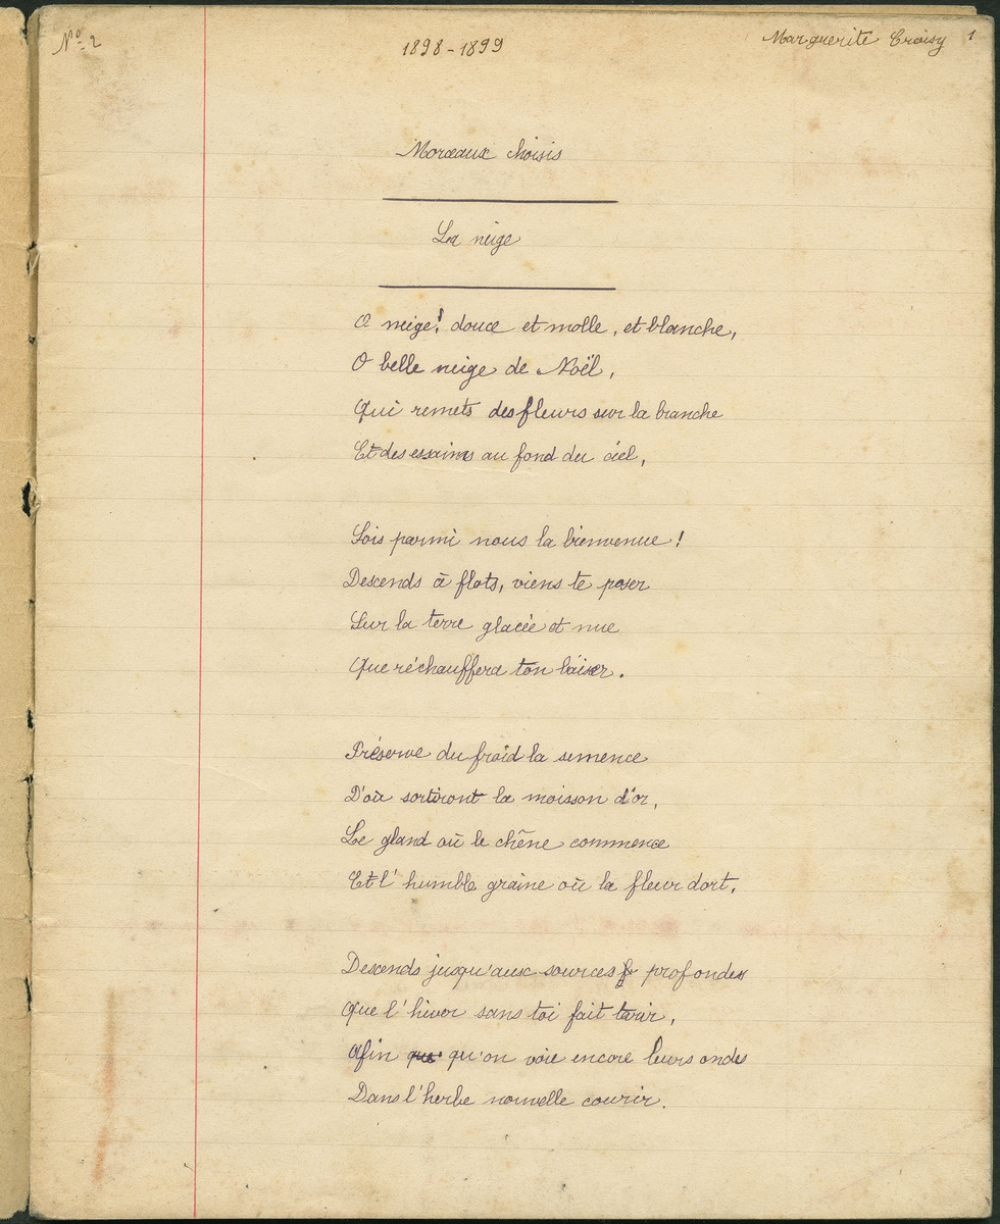 Nº 2
1898-1899
Marguerite Croisy 1
Morceaux choisis
La neige
O neige! douce et molle, et blanche,
O belle neige de Noël,
Qui remets des fleurs sur la branche
Et des essaims au fond du ciel,
Sois parmi nous la bienvenue !
Descends à flots, viens te poser
Sur la terre glacée et nue
Que réchauffera ton baiser.
Préserve du froid la semence
D'où sortiront la moisson d'or,
Le gland où le chêne commence
Et l'humble graine où la fleur dort,
Descends jusqu'aux sources profondes
Que l'hiver sans toi fait tarir,
Afin que qu'on voie encore leurs ondes
Dans l'herbe nouvelle courir.